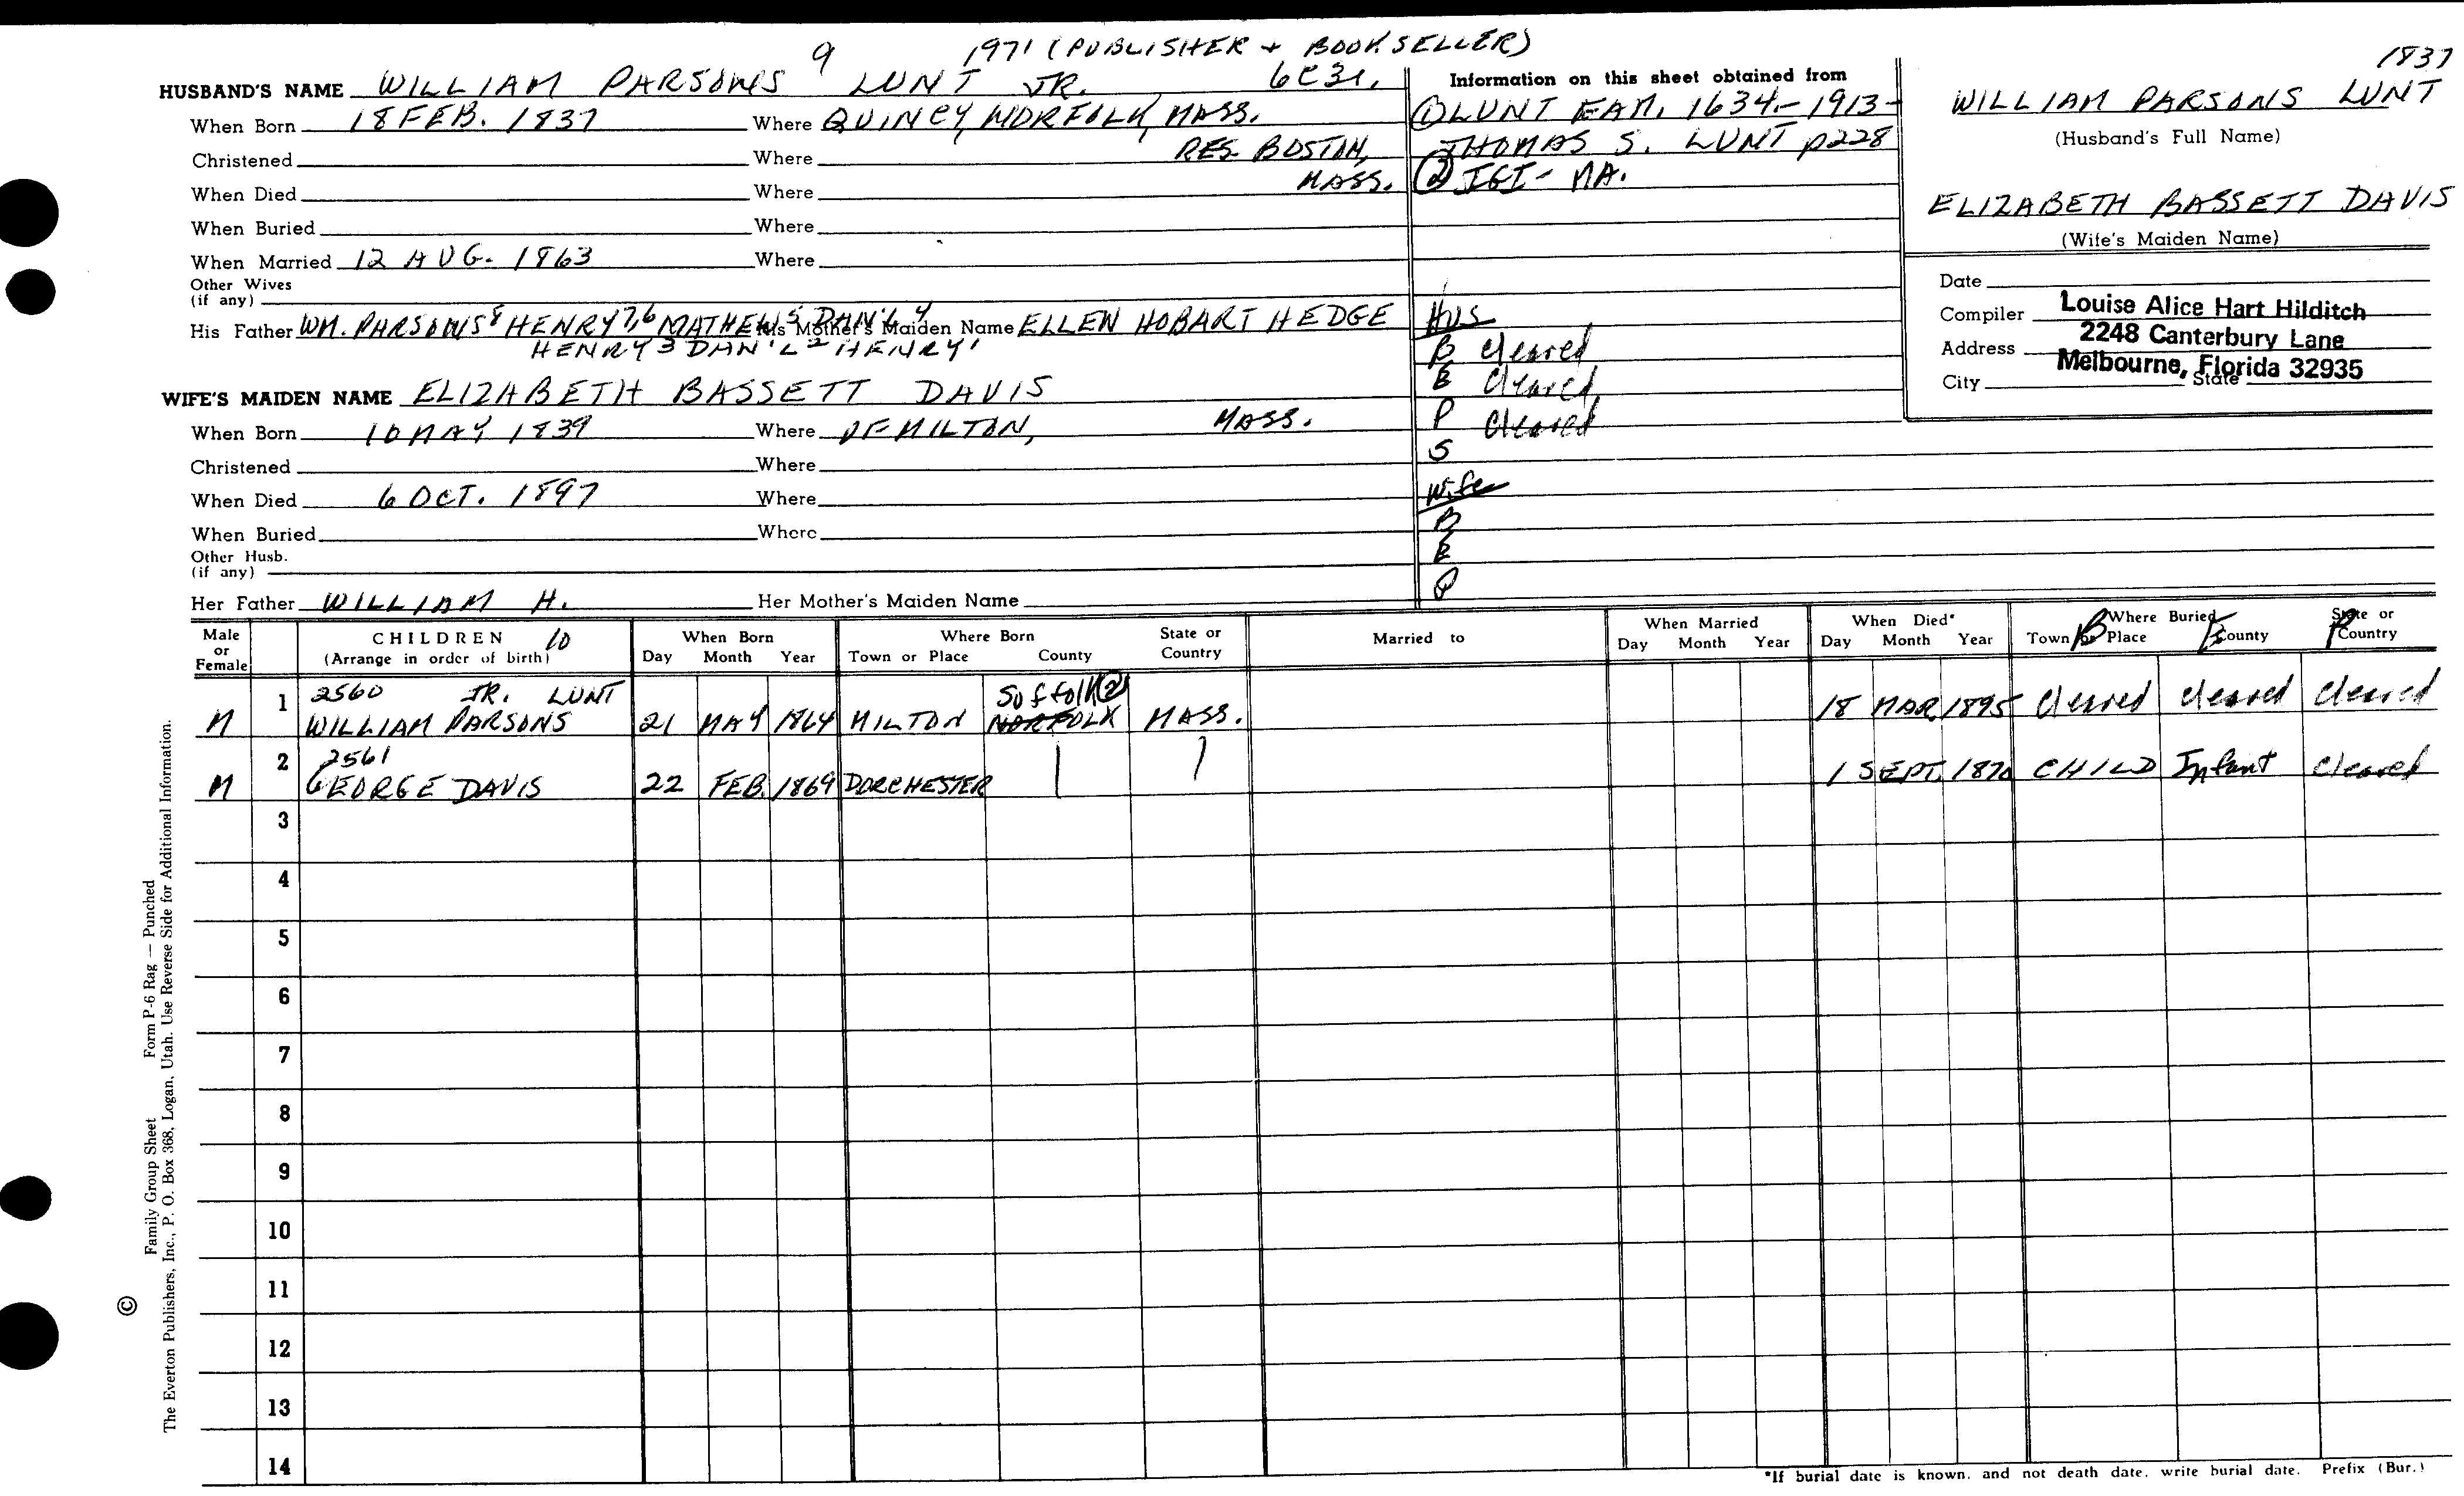 9 1971 (PUBLISHER + BOOKSELLER)
HUSBAND'S NAME WILLIAM PARSONS LUNT JR. 6E31,
When Born 18 FEB. 1837 Where QUINCY, NORFOLK, MASS.
Christened Where RES. BOSTON,
When Died Where MASS.
When Buried Where
When Married 12 AUG. 1863 Where
Other Wives
(if any)
His Father WM. PARSONS8 HENRY7,6 MATHEW5 DAN'L4 His Mother's Maiden Name ELLEN HOBART HEDGE
HENRY3 DAN'L2 HENRY1
WIFE'S MAIDEN NAME ELIZABETH BASSETT DAVIS
When Born 10 MAY 1839 Where OF MILTON, MASS.
Christened Where
When Died 6 OCT. 1897 Where
When Buried Where
Other Husb.
(if any)
Her Father WILLIAM H. Her Mother's Maiden Name
Information on this sheet obtained from
① LUNT FAM. 1634-1913-
THOMAS S. LUNT p228
② IGI - MA.
HUS
B cleared
E cleared
P cleared
S
Wife
B
E
P
1837
WILLIAM PARSONS LUNT
(Husband's Full Name)
ELIZABETH BASSETT DAVIS
(Wife's Maiden Name)
Date
Compiler Louise Alice Hart Hilditch
Address 2248 Canterbury Lane
City Melbourne, Florida 32935
State
Male or Female CHILDREN 10 (Arrange in order of birth) When Born Day Month Year Where Born Town or Place County State or Country Married to When Married Day Month Year When Died* Day Month Year Where Buried Town or Place County State or Country B E P
2560 JR. LUNT Suffolk②
M 1 WILLIAM PARSONS 21 MAY 1864 MILTON NORFOLK MASS. 18 MAR 1895 cleared cleared cleared
2561
M 2 GEORGE DAVIS 22 FEB. 1869 DORCHESTER 1 SEPT. 1870 CHILD Infant cleared
3
4
5
6
7
8
9
10
11
12
13
14
*If burial date is known, and not death date, write burial date. Prefix (Bur.)
© Family Group Sheet Form P-6 Rag — Punched
The Everton Publishers, Inc., P. O. Box 368, Logan, Utah. Use Reverse Side for Additional Information.